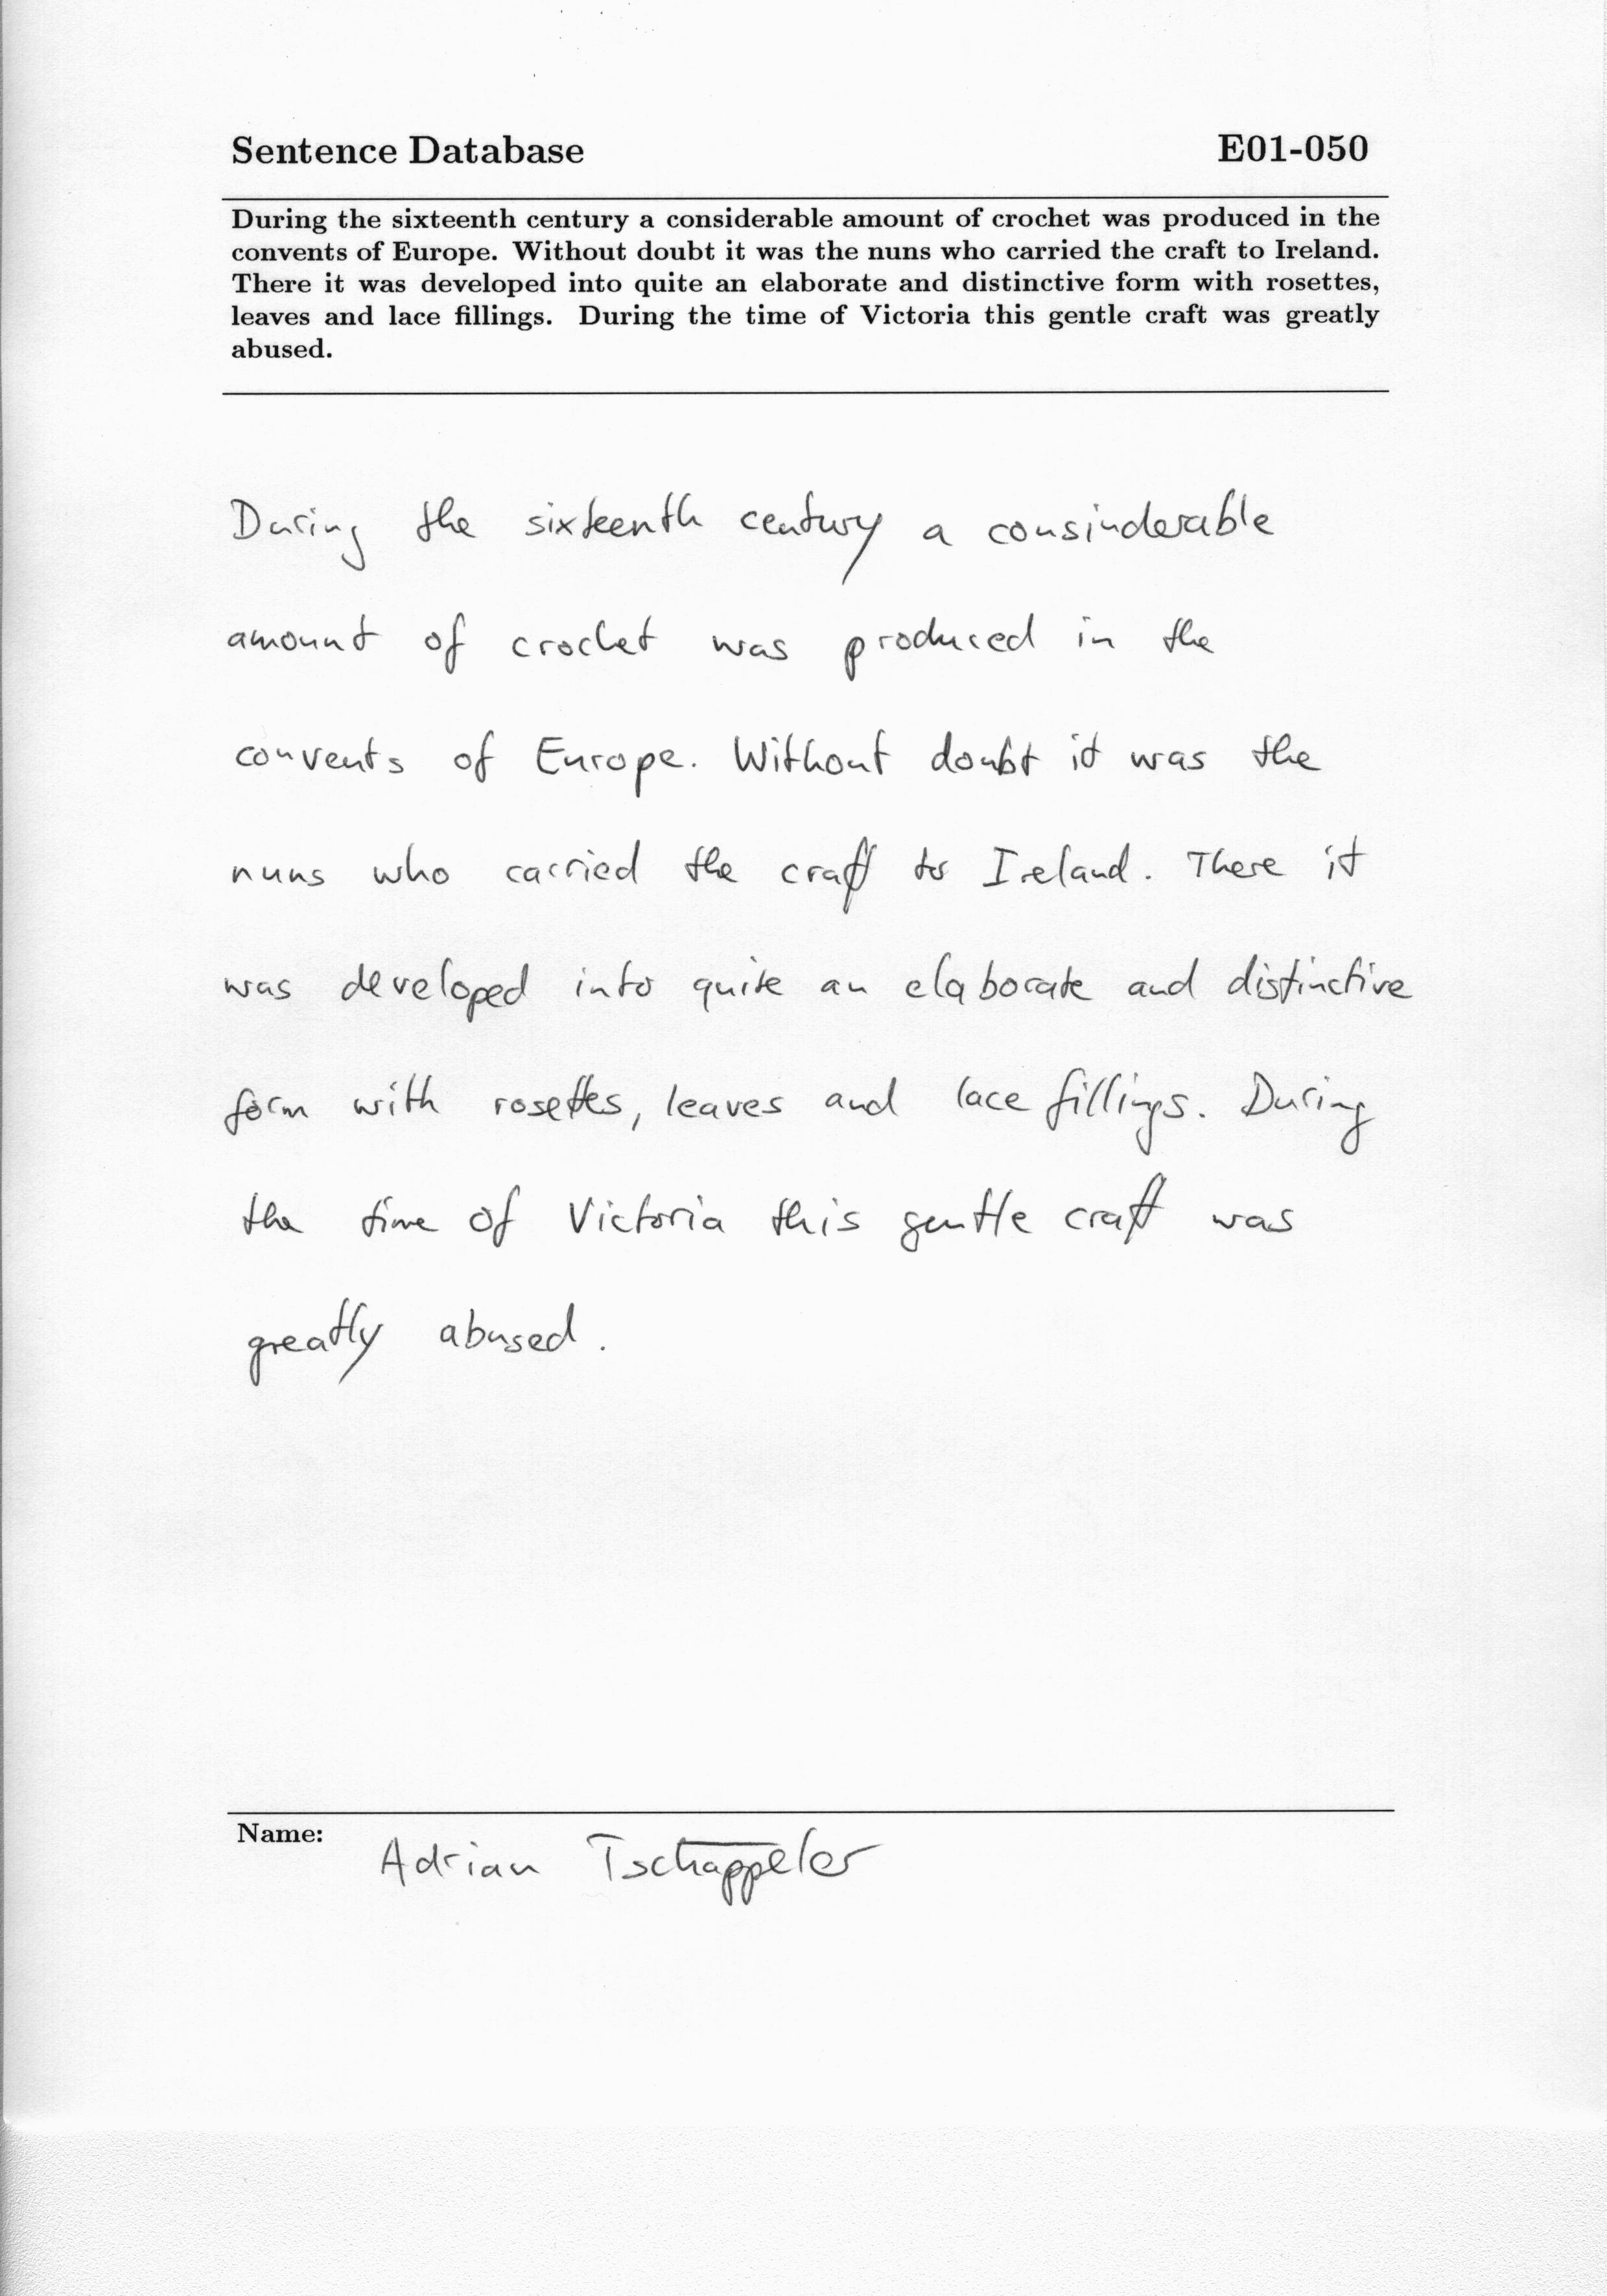 Sentence Database E01-050
During the sixteenth century a considerable amount of crochet was produced in the
convents of Europe. Without doubt it was the nuns who carried the craft to Ireland.
There it was developed into quite an elaborate and distinctive form with rosettes,
leaves and lace fillings. During the time of Victoria this gentle craft was greatly
abused.
During the sixteenth century a consinderable
amount of crochet was produced in the
convents of Europe. Without doubt it was the
nuns who carried the craft to Ireland. There it
was developed into quite an elaborate and distinctive
form with rosettes, leaves and lace fillings. During
the time of Victoria this gentle craft was
greatly abused.
Name: Adrian Tschappeler